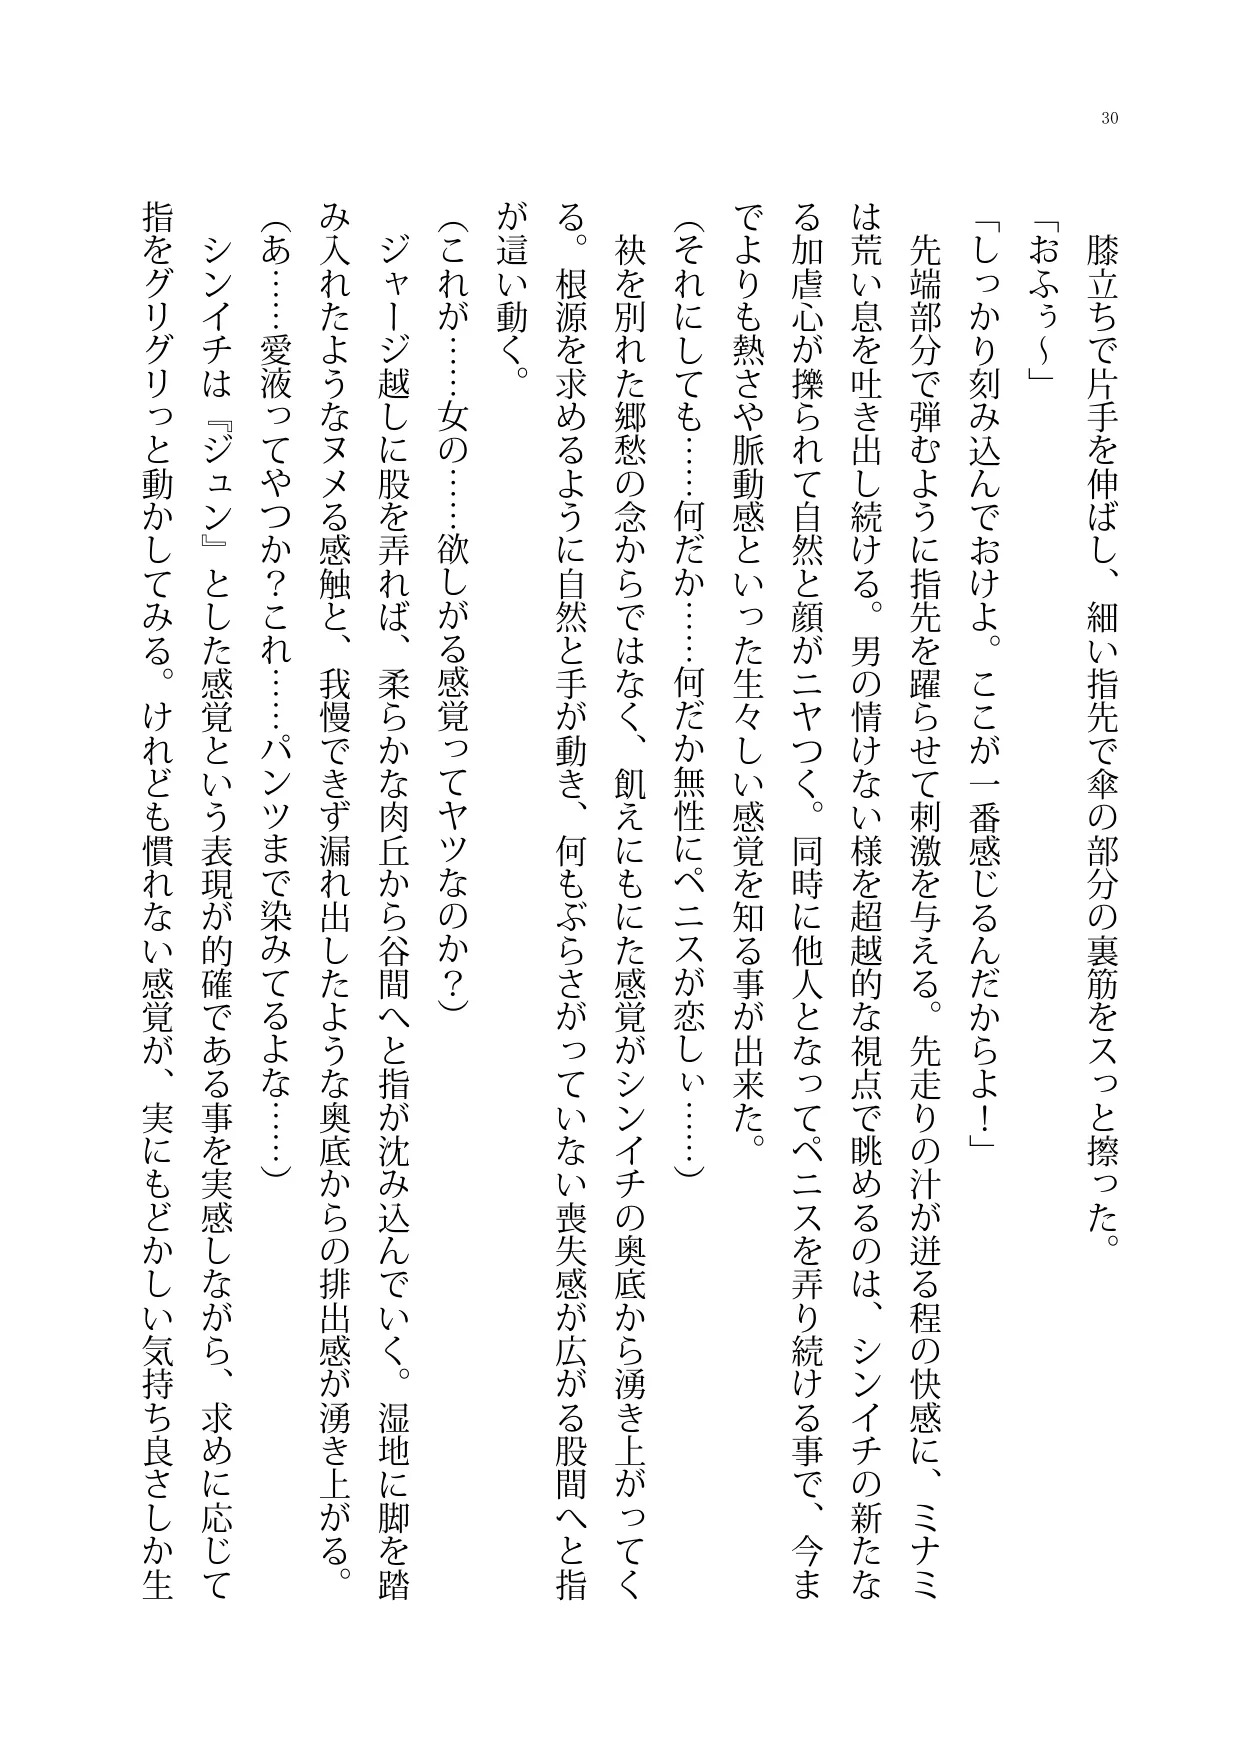 30
膝立ちで片手を伸ばし、細い指先で傘の部分の裏筋をスっと擦った。
「おふぅ～」
「しっかり刻み込んでおけよ。ここが一番感じるんだからよ！」
先端部分で弾むように指先を躍らせて刺激を与える。先走りの汁が迸る程の快感に、ミナミ
は荒い息を吐き出し続ける。男の情けない様を超越的な視点で眺めるのは、シンイチの新たな
る加虐心が擽られて自然と顔がニヤつく。同時に他人となってペニスを弄り続ける事で、今ま
でよりも熱さや脈動感といった生々しい感覚を知る事が出来た。
（それにしても……何だか……何だか無性にペニスが恋しぃ……）
袂を別れた郷愁の念からではなく、飢えにもにた感覚がシンイチの奥底から湧き上がってく
る。根源を求めるように自然と手が動き、何もぶらさがっていない喪失感が広がる股間へと指
が這い動く。
（これが……女の……欲しがる感覚ってヤツなのか？）
ジャージ越しに股を弄れば、柔らかな肉丘から谷間へと指が沈み込んでいく。湿地に脚を踏
み入れたようなヌメる感触と、我慢できず漏れ出したような奥底からの排出感が湧き上がる。
（あ……愛液ってやつか？これ……パンツまで染みてるよな……）
シンイチは『ジュン』とした感覚という表現が的確である事を実感しながら、求めに応じて
指をグリグリっと動かしてみる。けれども慣れない感覚が、実にもどかしい気持ち良さしか生